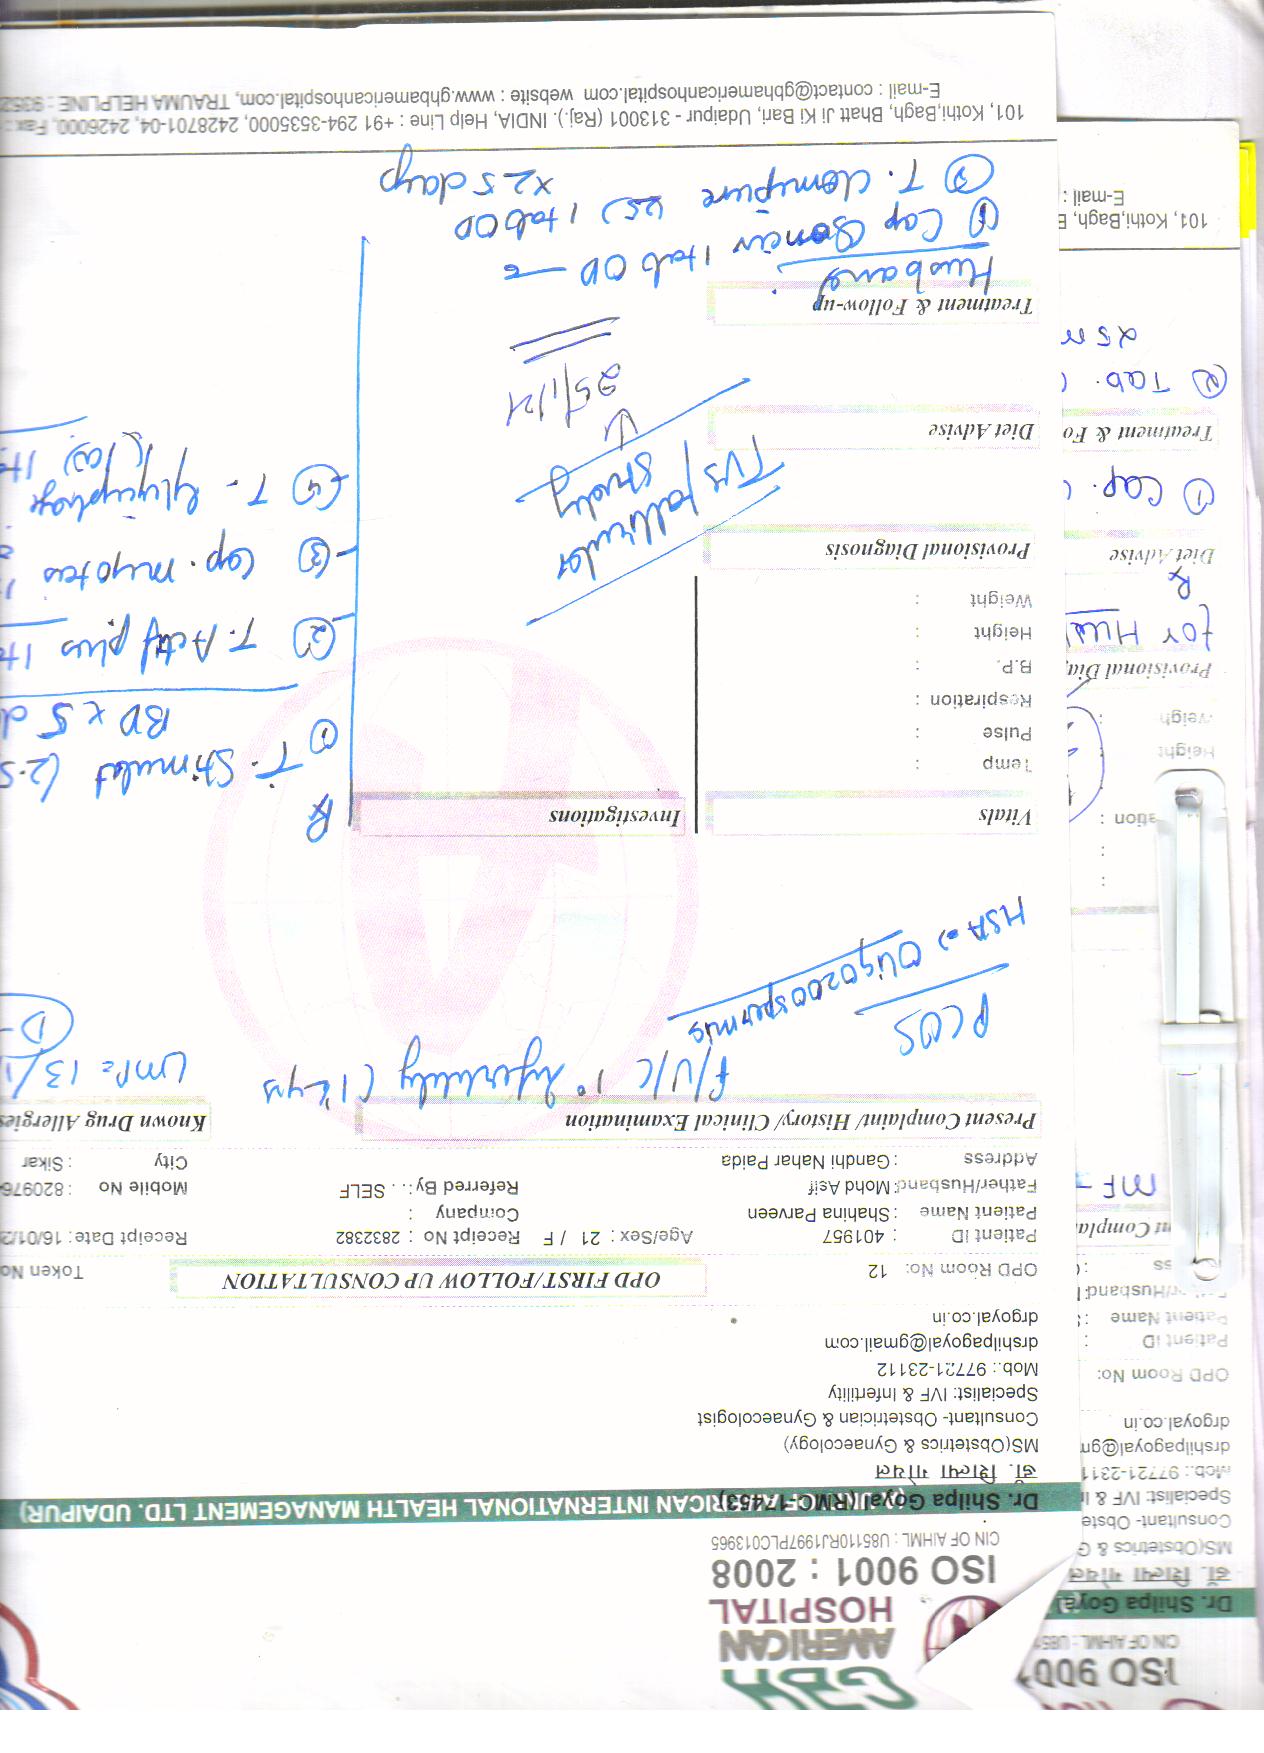 GBH
AMERICAN
HOSPITAL
ISO 9001 : 2008
CIN OF AIHML : U85110RJ1997PLC013965
AMERICAN INTERNATIONAL HEALTH MANAGEMENT LTD. UDAIPUR)
Dr. Shilpa Goyal (RMC-17453)
डॉ. शिल्पा गोयल
MS(Obstetrics & Gynaecology)
Consultant- Obstetrician & Gynaecologist
Specialist: IVF & Infertility
Mob.: 97721-23112
drshilpagoyal@gmail.com
drgoyal.co.in
OPD Room No: 12
OPD FIRST/FOLLOW UP CONSULTATION
Token No
Patient ID : 401957 Age/Sex : 21 / F Receipt No : 2832382 Receipt Date: 16/01/2
Patient Name : Shahina Parveen Company :
Father/Husband: Mohd Asif Referred By: . . SELF Mobile No : 820976
Address : Gandhi Nahar Paida City : Sikar
Present Complaint/ History/ Clinical Examination Known Drug Allergies
F/U/C 1° Infertility (1½ yrs LMP= 13/1
PCOS
HSA => Oligozoospermia
Vitals Investigations Rx
Temp :
Pulse :
Respiration :
B.P. :
Height :
Weight :
Provisional Diagnosis
Diet Advise
Treatment & Follow-up
① T. Stimulet (2.5
BD x 5 d
② T. Actif plus 1t
③ Cap. myotes
④ T.
TVS/follicular
study
↓
25/1/21
Husband
① Cap 1tab OD
② T. clomipure (25) 1tab OD
x25 days
101, Kothi,Bagh, Bhatt Ji Ki Bari, Udaipur - 313001 (Raj.). INDIA, Help Line : +91 294-3535000, 2428701-04, 2426000, Fax :
E-mail : contact@gbhamericanhospital.com website : www.gbhamericanhospital.com, TRAUMA HELPLINE : 9352
ISO 900
CIN OF AIHML : U851
Dr. Shilpa Goyal
डॉ. शिल्पा गोयल
MS(Obstetrics & G
Consultant- Obste
Specialist: IVF & I
Mob.: 97721-2311
drshilpagoyal@gm
drgoyal.co.in
OPD Room No:
Patient ID
Patient Name :
r/Husband:
ss
nt Complai
MF -
ation :
Height
Weigh
Provisional Diag
for Hus
Rx
Diet Advise
① Cap.
Treatment & Fo
② Tab.
101, Kothi,Bagh, B
E-mail :